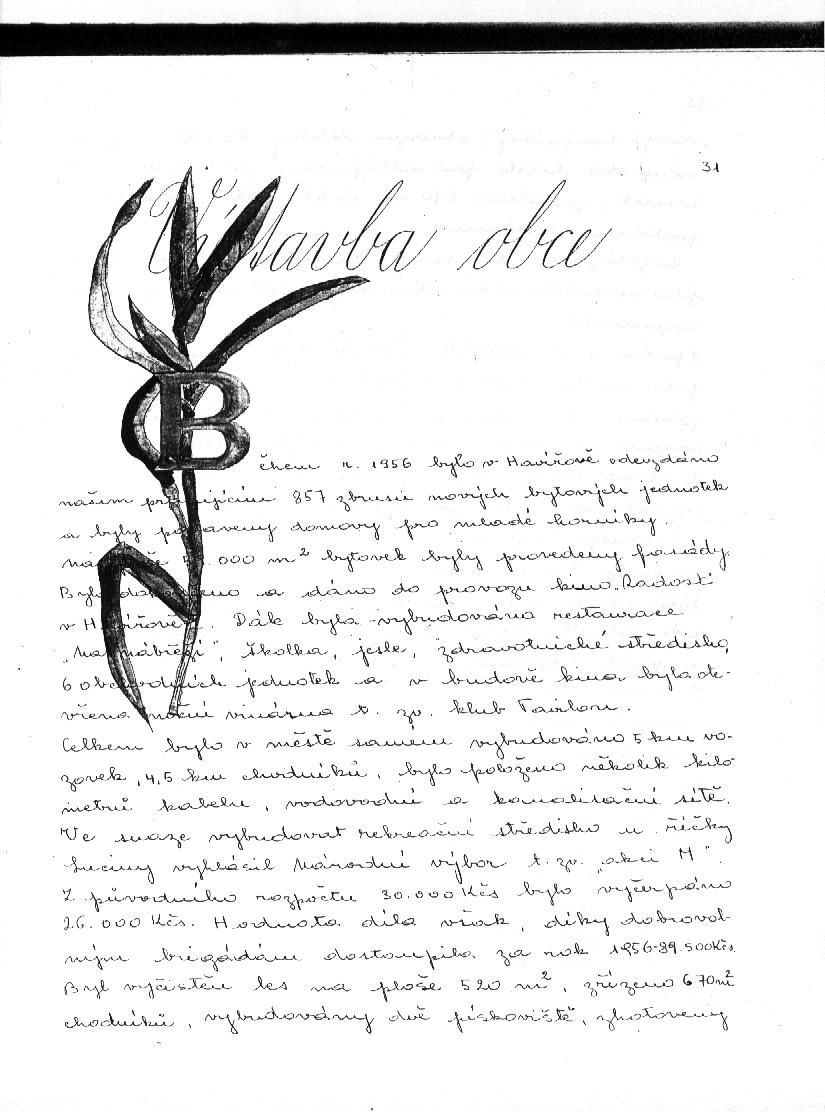 31
Výstavba obce
Během r. 1956 bylo v Havířově odevzdáno
našim pracujícím 857 zbrusu nových bytových jednotek
a byly postaveny domovy pro mladé horníky.
Na ploše .000 m² bytovek byly provedeny fasády.
Bylo dokončeno a dáno do provozu kino „Radost"
v Havířově. Dák byla vybudována restaurace
„Na nábřeží", školka, jesle, zdravotnické středisko,
6 obchodních jednotek a v budově kina byla ote-
vřena noční vinárna t. zv. klub Pavilon.
Celkem bylo v městě samém vybudováno 5 km vo-
zovek, 4,5 km chodníků, bylo položeno několik kilo-
metrů kabelu, vodovodní a kanalisační sítě.
Ve snaze vybudovat rekreační středisko u říčky
Luciny vyhlásil Národní výbor t. zv. „akci M".
Z původního rozpočtu 30.000 Kčs bylo vyčerpáno
26.000 Kčs. Hodnota díla však, díky dobrovol-
ným brigádám dostoupila za rok 1956-89.500 Kčs.
Byl vyčištěn les na ploše 520 m², zřízeno 670 m²
chodníků, vybudovány dvě pískoviště, zhotoveny